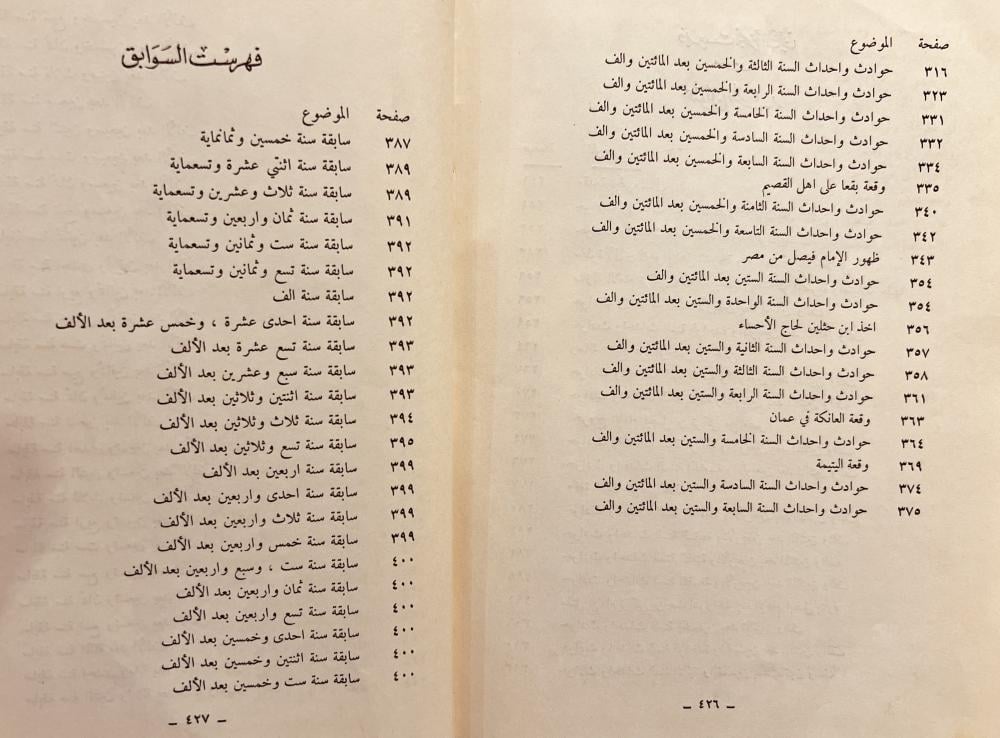 صفحة الموضوع
٣١٦ حوادث واحداث السنة الثالثة والخمسين بعد المائتين والف
٣٢٣ حوادث واحداث السنة الرابعة والخمسين بعد المائتين والف
٣٣١ حوادث واحداث السنة الخامسة والخمسين بعد المائتين والف
٣٣٢ حوادث واحداث السنة السادسة والخمسين بعد المائتين والف
٣٣٤ حوادث واحداث السنة السابعة والخمسين بعد المائتين والف
٣٣٥ وقعة بقعا على اهل القصيم
٣٤٠ حوادث واحداث السنة الثامنة والخمسين بعد المائتين والف
٣٤٢ حوادث واحداث السنة التاسعة والخمسين بعد المائتين والف
٣٤٣ ظهور الإمام فيصل من مصر
٣٥٤ حوادث واحداث السنة الستين بعد المائتين والف
٣٥٤ حوادث واحداث السنة الواحدة والستين بعد المائتين والف
٣٥٦ اخذ ابن حثلين لحاج الأحساء
٣٥٧ حوادث واحداث السنة الثانية والستين بعد المائتين والف
٣٥٨ حوادث واحداث السنة الثالثة والستين بعد المائتين والف
٣٦١ حوادث واحداث السنة الرابعة والستين بعد المائتين والف
٣٦٣ وقعة العانكة في عمان
٣٦٤ حوادث واحداث السنة الخامسة والستين بعد المائتين والف
٣٦٩ وقعة اليتيمة
٣٧٤ حوادث واحداث السنة السادسة والستين بعد المائتين والف
٣٧٥ حوادث واحداث السنة السابعة والستين بعد المائتين والف
– ٤٢٦ –
فهرست السوابق
صفحة الموضوع
٣٨٧ سابقة سنة خمسين وثمانماية
٣٨٩ سابقة سنة اثنتي عشرة وتسعماية
٣٨٩ سابقة سنة ثلاث وعشرين وتسعماية
٣٩١ سابقة سنة ثمان واربعين وتسعماية
٣٩٢ سابقة سنة ست وثمانين وتسعماية
٣٩٢ سابقة سنة تسع وثمانين وتسعماية
٣٩٢ سابقة سنة الف
٣٩٢ سابقة سنة احدى عشرة ، وخمس عشرة بعد الألف
٣٩٣ سابقة سنة تسع عشرة بعد الألف
٣٩٣ سابقة سنة سبع وعشرين بعد الألف
٣٩٣ سابقة سنة اثنتين وثلاثين بعد الألف
٣٩٤ سابقة سنة ثلاث وثلاثين بعد الألف
٣٩٥ سابقة سنة تسع وثلاثين بعد الألف
٣٩٩ سابقة سنة اربعين بعد الألف
٣٩٩ سابقة سنة احدى واربعين بعد الألف
٣٩٩ سابقة سنة ثلاث واربعين بعد الألف
٣٩٩ سابقة سنة خمس واربعين بعد الألف
٤٠٠ سابقة سنة ست ، وسبع واربعين بعد الألف
٤٠٠ سابقة سنة ثمان واربعين بعد الألف
٤٠٠ سابقة سنة تسع واربعين بعد الألف
٤٠٠ سابقة سنة احدى وخمسين بعد الألف
٤٠٠ سابقة سنة اثنتين وخمسين بعد الألف
٤٠٠ سابقة سنة ست وخمسين بعد الألف
– ٤٢٧ –